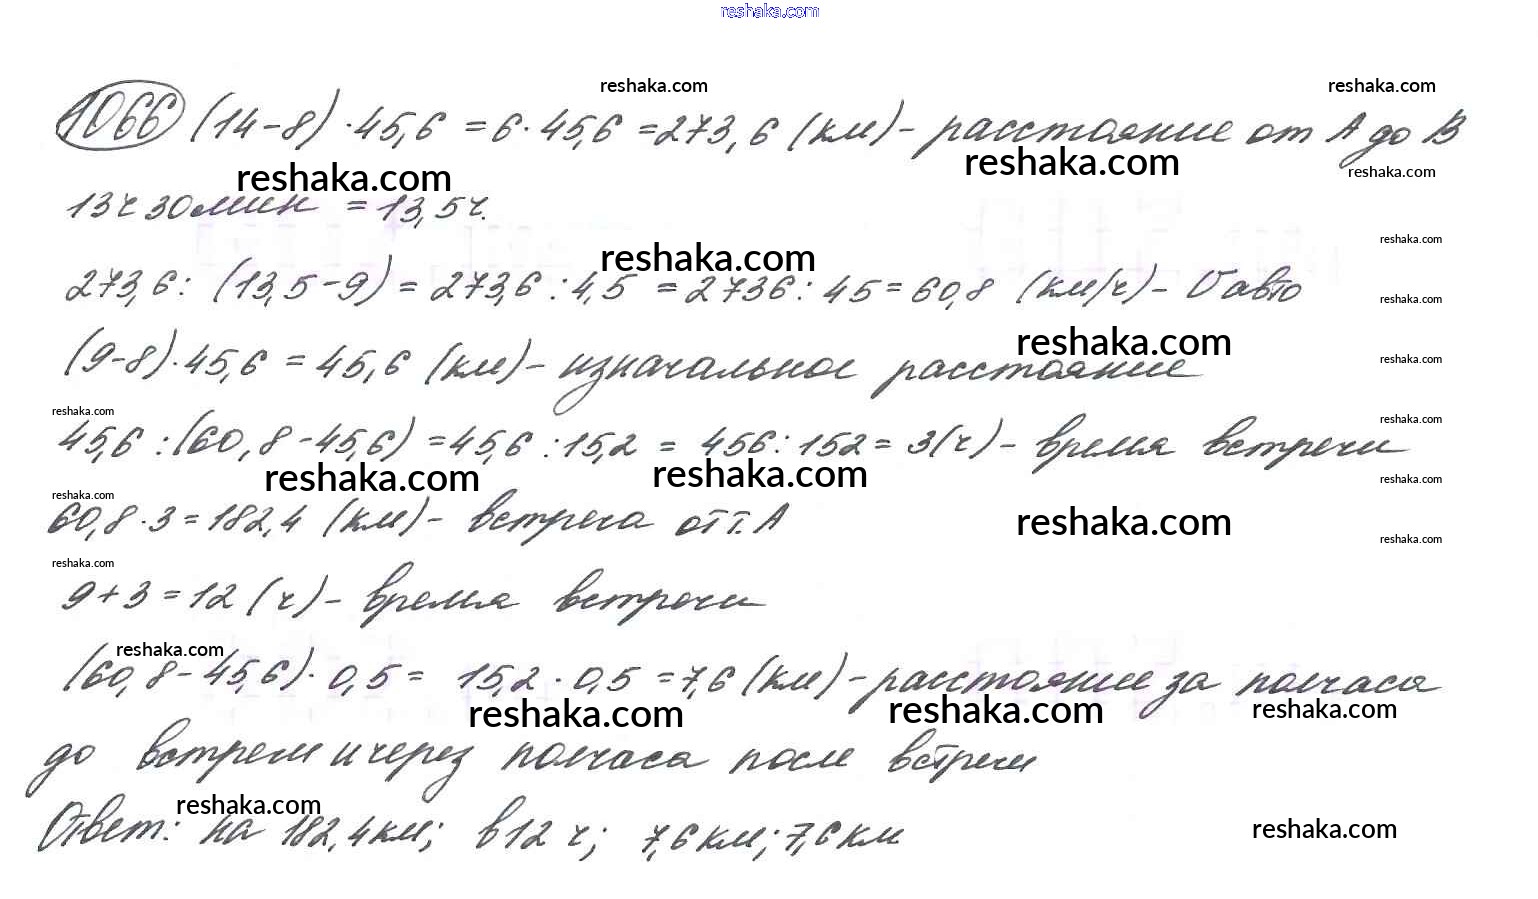 reshaka.com
reshaka.com reshaka.com
1066 (14-8)·45,6 = 6·45,6 = 273,6 (км) - расстояние от А до В
reshaka.com reshaka.com reshaka.com
13ч 30мин = 13,5ч.
reshaka.com
reshaka.com
273,6 : (13,5-9) = 273,6 : 4,5 = 2736 : 45 = 60,8 (км/ч) - V авто
reshaka.com
reshaka.com
(9-8)·45,6 = 45,6 (км) - изначальное расстояние
reshaka.com
reshaka.com reshaka.com
45,6 : (60,8-45,6) = 45,6 : 15,2 = 456 : 152 = 3(ч) - время встречи
reshaka.com reshaka.com reshaka.com
reshaka.com
60,8·3 = 182,4 (км) - встреча от т. А
reshaka.com
reshaka.com
reshaka.com
9+3 = 12 (ч) - время встречи
reshaka.com
(60,8-45,6)·0,5 = 15,2·0,5 = 7,6 (км) - расстояние за полчаса
reshaka.com reshaka.com reshaka.com
до встречи и через полчаса после встречи
reshaka.com
Ответ: на 182,4 км; в 12 ч; 7,6 км; 7,6 км
reshaka.com